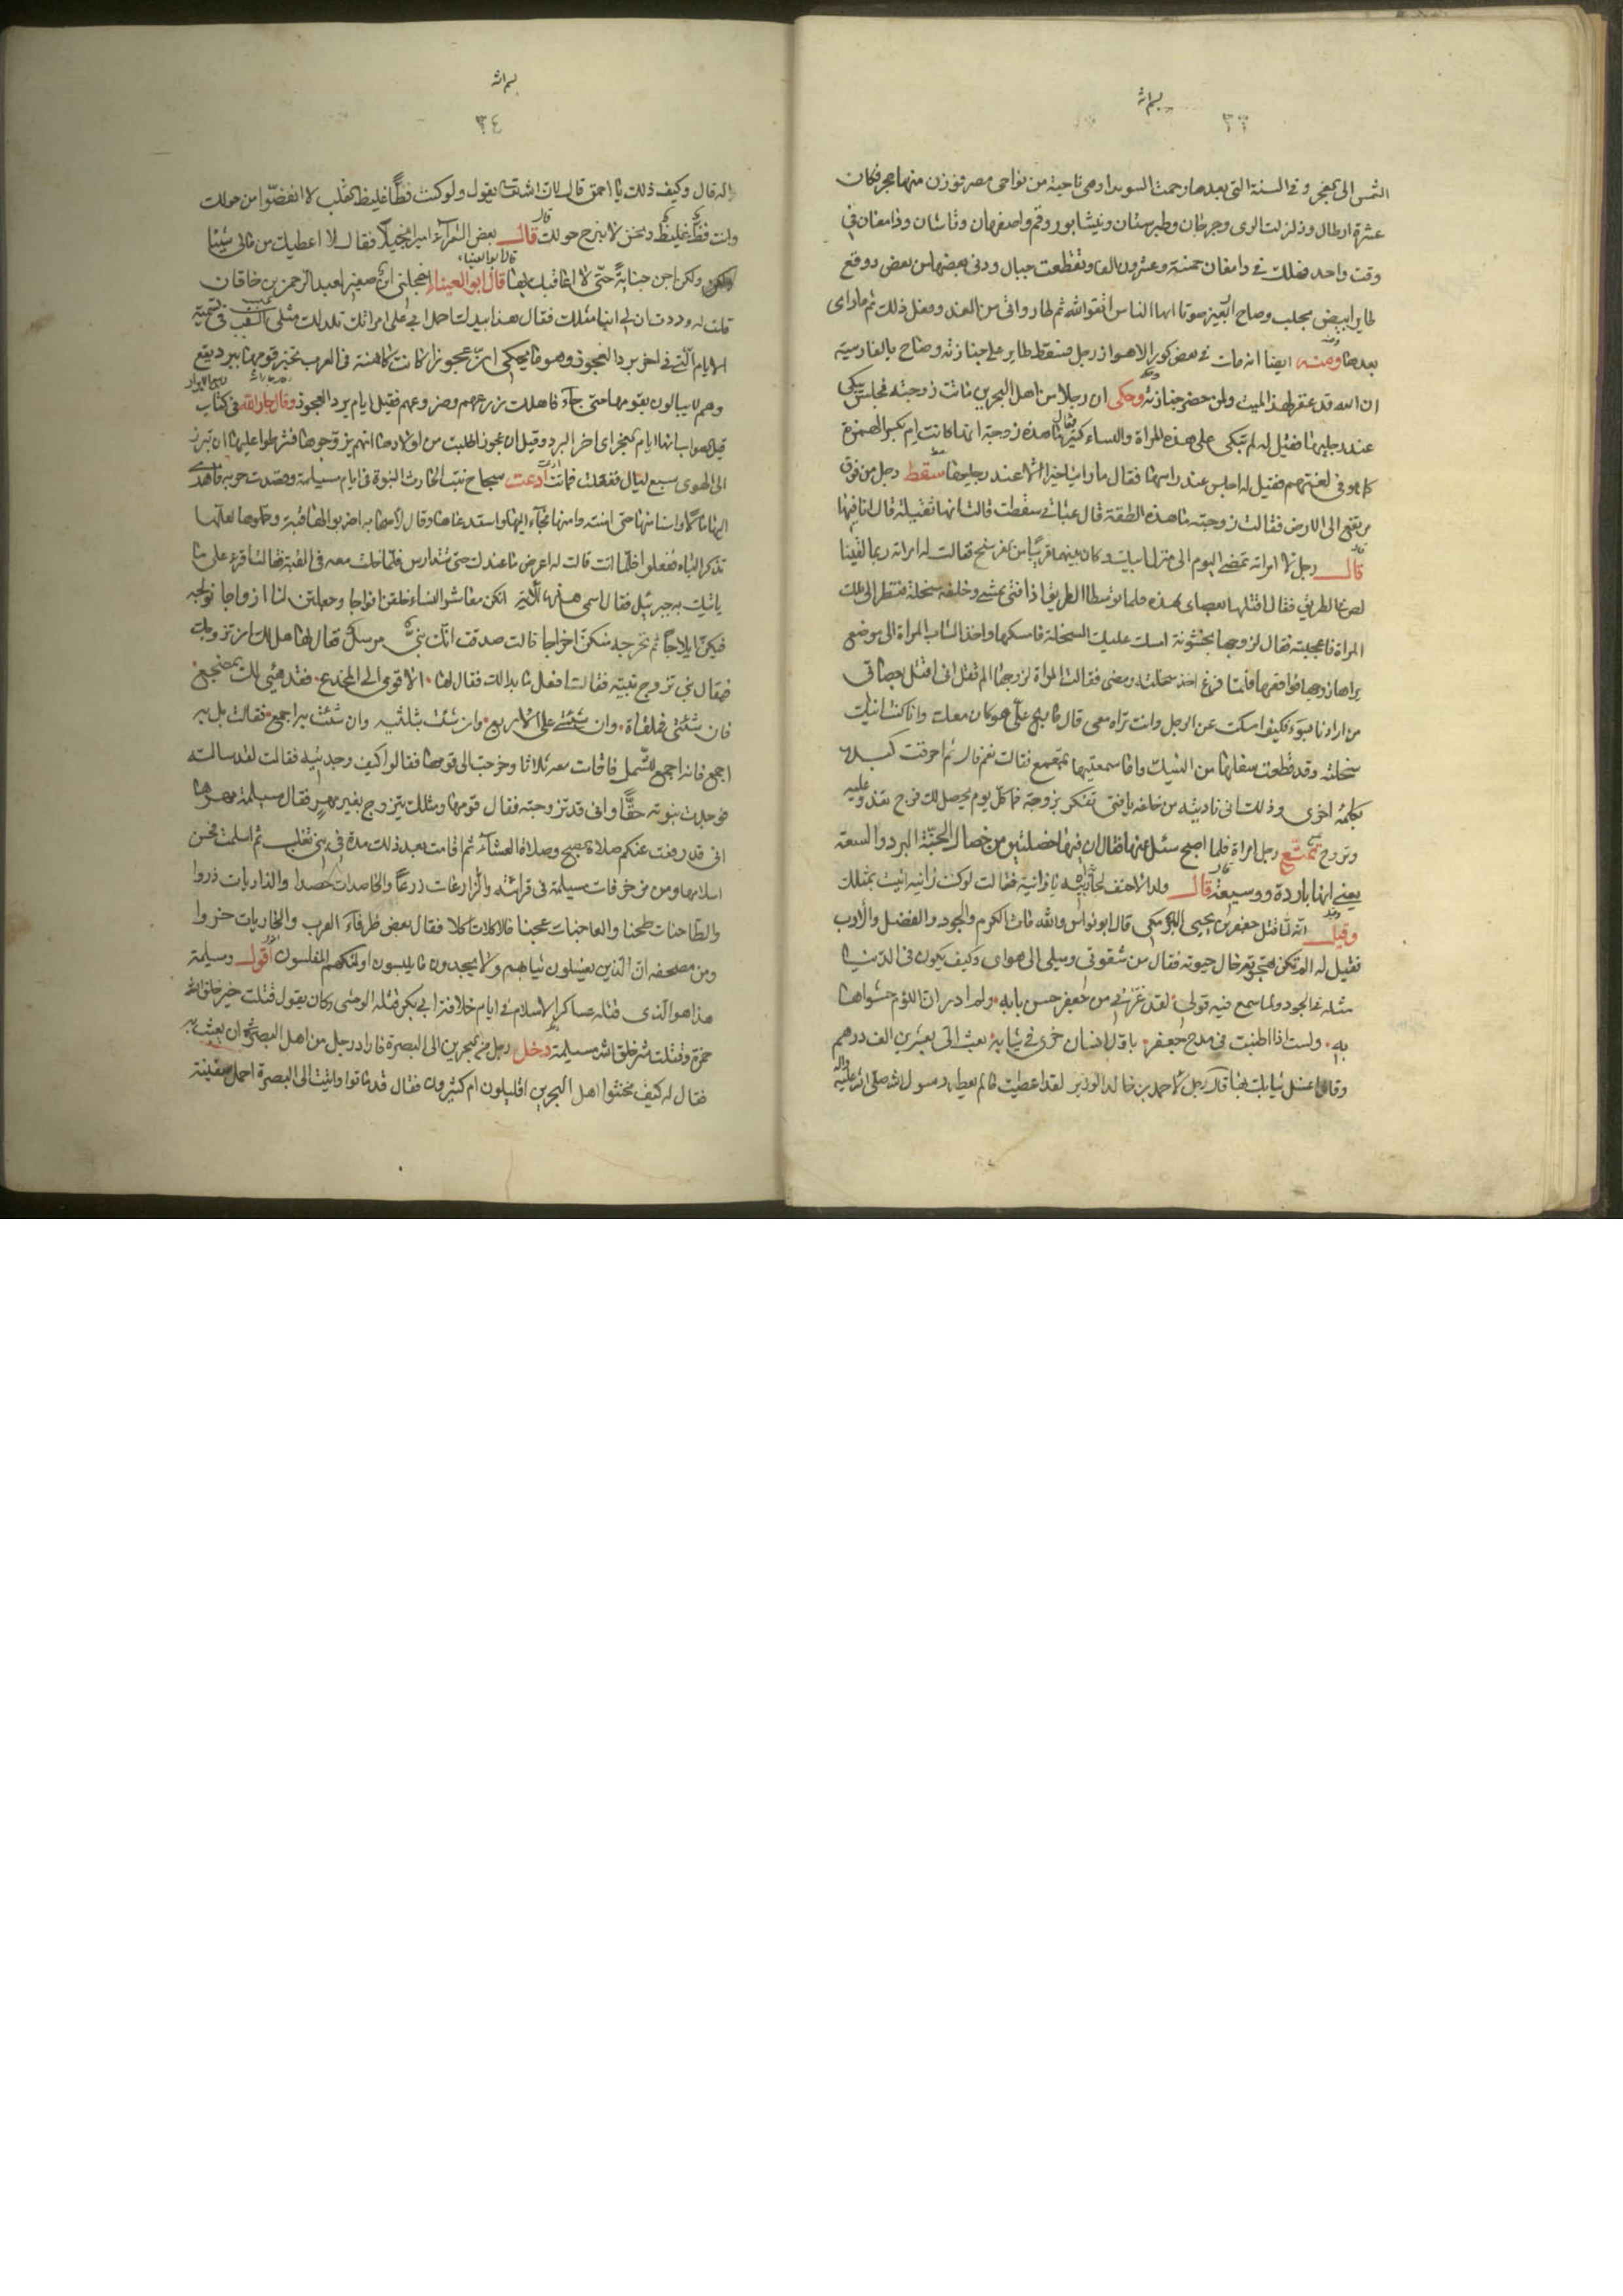 بسم الله
٣٣
الشمس الى الفجر وفي السنة التى بعدها رجمت السويدا وهى ناحية من نواحى مصر فوزن منها حجر فكان
عشرة ارطال وزلزلت الرى وجرجان وطبرستان ونيشابور وقم واصفهان وقاشان ودامغان في
وقت واحد فهلك في دامغان خمسة وعشرون الفا وتقطعت جبال ودنى بعضها من بعض ووقع
طاير ابيض بحلب وصاح اربعين صوتا ايها الناس اتقوا الله ثم طار واتى من الغد وفعل ذلك ثم ما راى
بعدها ومنه ايضا انه مات في بعض كور الاهواز رجل فسقط طاير على جنازته وصاح بالفارسية
ان الله قد غفر لهذا الميت ولمن حضر جنازته وحكى ان رجلا من اهل البحرين ماتت زوجته فجلس يبكى
عند رجليها فقيل له لم تبكى على هذه المراة والنساء كثير فقال هذه زوجة انها كانت ام بكسر الهمزة
كما هو في لغتهم فقيل له اجلس عند راسها فقال ما رايت خيرا الا عند رجليها سقط رجل من فوق
مرتفع الى الارض فقالت زوجته ما هذه الطقة قال عبائى سقطت قالت انها ثقيلة قال انا فيها
قال رجل لامراته نمضى اليوم الى منزل ابيك وكان بينهما قريبا من فرسخ فقالت له امراته ربما لقينا
لص في الطريق فقال اقتله بعصاى هذه فلما توسطا الطريق اذا فتى يمشى وخلفه سخلة فنظر الى تلك
المراة فاعجبته فقال لزوجها بخشونة امسك عليك السخلة فامسكها واخذ الشاب المراة الى موضع
يراها زوجها فواقعها فلما فرغ اخذ سخلته ومضى فقالت المراة لزوجها الم تقل انى اقتل بعصاى
من ارادنا بسوء فكيف امسكت عن الرجل وانت تراه معى قال ما بيح على هو كان معك وانا كنت انيك
سخلته وقد قطعت سفارها من النيك واما سمعتيها تمعمع فقالت نعم قال ثم احرقت كبده
بكلمة اخرى وذلك انى ناديته من خلفه يا فتى تفكر بزوجة فما كل يوم يحصل لك فرج تغدو عليه
وتروح تمتع رجل امراة فلما اصبح سئل عنها فقال ان فيها خصلتين من خصال الجنة البرد والسعة
يعنى انها باردة ووسيعة قال ولد الاحنف لجارية ابيه يا زانية فقالت لو كنت زانية اتيت بمثلك
وقيل انه لما قتل جعفر بن يحيى البرمكى قال ابونواس والله مات الكرم والجود والفضل والادب
فقيل له الم تكن تهجوه حال حيوته فقال من شقوتى وميلى الى هواى وكيف يكون في الدنيا
مثله في الجود ولما سمع فيه قولى لقد غرنى من جعفر حسن بابه ولم ادر ان اللؤم حشو اهابه
به ولست اذا اطنبت في مدح جعفر باول انسان خرى في ثيابه بعث الى بعشرين الف درهم
وقال اغسل ثيابك بها قال رجل لاحمد بن خالد الوزير لقد اعطيت ما لم يعطه رسول الله صلى الله عليه
بسم الله
٣٤
واله قال وكيف ذلك يا احمق قال لان الله يقول ولو كنت فظا غليظ القلب لا انفضوا من حولك
وانت فظ غليظ ونحن لا نبرح حولك قال بعض الشعراء اميرا بخيلا فقال لا اعطيك من مالى شيئا
ولكن اجن جناية حتى لا اعاقبك بها قال ابو العيناء اخجلنى ابن صغير لعبد الرحمن بن خاقان
قلت له وددت ان لى ابنا مثلك فقال هذا بيدك احمل ابى على امراتك تلد لك مثلى في تسمية
الايام التى في اخر برد العجوز وهو ما يحكى ان عجوزا كانت كاهنة في العرب تخبر قومها ببرد يقع
وهم لا يبالون بقولها حتى جاء فاهلك زرعهم وضرعهم فقيل ايام برد العجوز وقال جار الله في كتاب ربيع الابرار
قيل الصواب انها ايام العجز اى اخر البرد وقيل ان عجوزا طلبت من اولادها انهم يزوجوها فشرطوا عليها ان تبرز
الى الهوى سبع ليال ففعلت فماتت ادعت سجاح بنت الحارث النبوة في ايام مسيلمة وقصدت حربه فاهدى
اليها مالا واستامنها حتى امنته وامنها فجاء اليها واستدعاها وقال لاصحابه اضربوا لها قبة وجمروها لعلها
تذكر الباه ففعلوا فلما اتت قالت له اعرض ما عندك حتى نتدارس فلما خلت معه في القبة قالت اقرء على ما
ياتيك به جبريل فقال اسمعى هذه الآية انكن معاشر النساء خلقن افواجا وجعلتن لنا ازواجا نولجه
فيكن ايلاجا ثم نخرجه منكن اخراجا قالت صدقت انك نبى مرسل فقال لها هل لك ان اتزوجك
فيقال نبى تزوج نبية فقالت افعل ما بدا لك فقال لها الا قومى الى المخدع فقد هيئى لك المضجع
فان شئتى فملقاة وان شئتى على الاربع وان شئت بثلثيه وان شئت به اجمع فقالت بل به
اجمع فانه اجمع للشمل فاقامت معه ثلاثا وخرجت الى قومها فقالوا كيف وجدتيه فقالت لقد سالته
فوجدت نبوته حقا وانى قد تزوجته فقال قومها ومثلك يتزوج بغير مهر فقال مسيلمة مهرها
انى قد رفعت عنكم صلاة الصبح وصلاة العشاء ثم اقامت بعد ذلك مدة في بنى تغلب ثم اسلمت فحسن
اسلامها ومن مزخرفات مسيلمة في قرائته والزارعات زرعا والحاصدات حصدا والذاريات ذروا
والطاحنات طحنا والعاجنات عجينا فالاكلات اكلا فقال بعض ظرفاء العرب والخاريات خروا
ومن مصحفه ان الذين يغسلون ثيابهم ولا يجدون ما يلبسون اولئكهم المفلسون اقول ومسيلمة
هذا هو الذى قتله عساكر الاسلام في ايام خلافة ابى بكر قتله الوحشى وكان يقول قتلت خير خلق الله
حمزة وقتلت شر خلق الله مسيلمة دخل رجل من البحرين الى البصرة فاراد رجل من اهل البصرة ان يعبث به
فقال له كيف مخنثوا اهل البحرين اقليلون ام كثيرون فقال قد ماتوا واتيت الى البصرة احمل سفينة